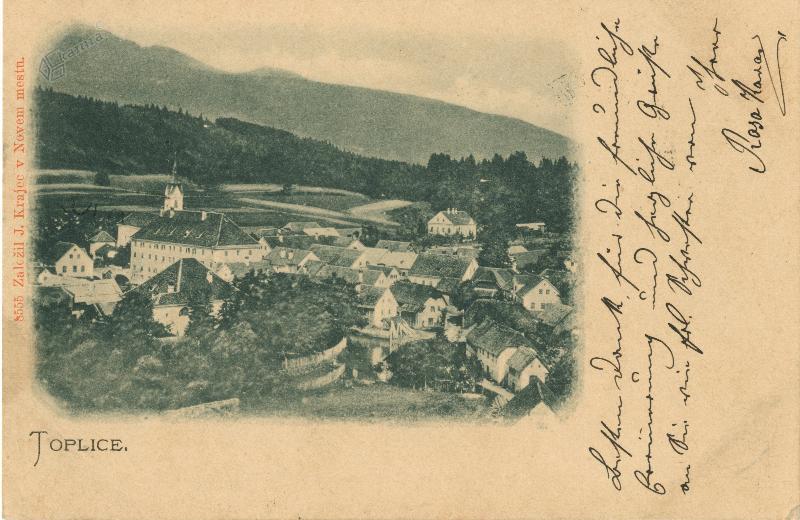 kamra
8555 Založil J. Krajec v Novem mestu.
TOPLICE.
Besten Dank für die freundliche
Erinnerung und herzliche Grüße
an Sie wie Frl. Schwester von Ihrer
Rosa